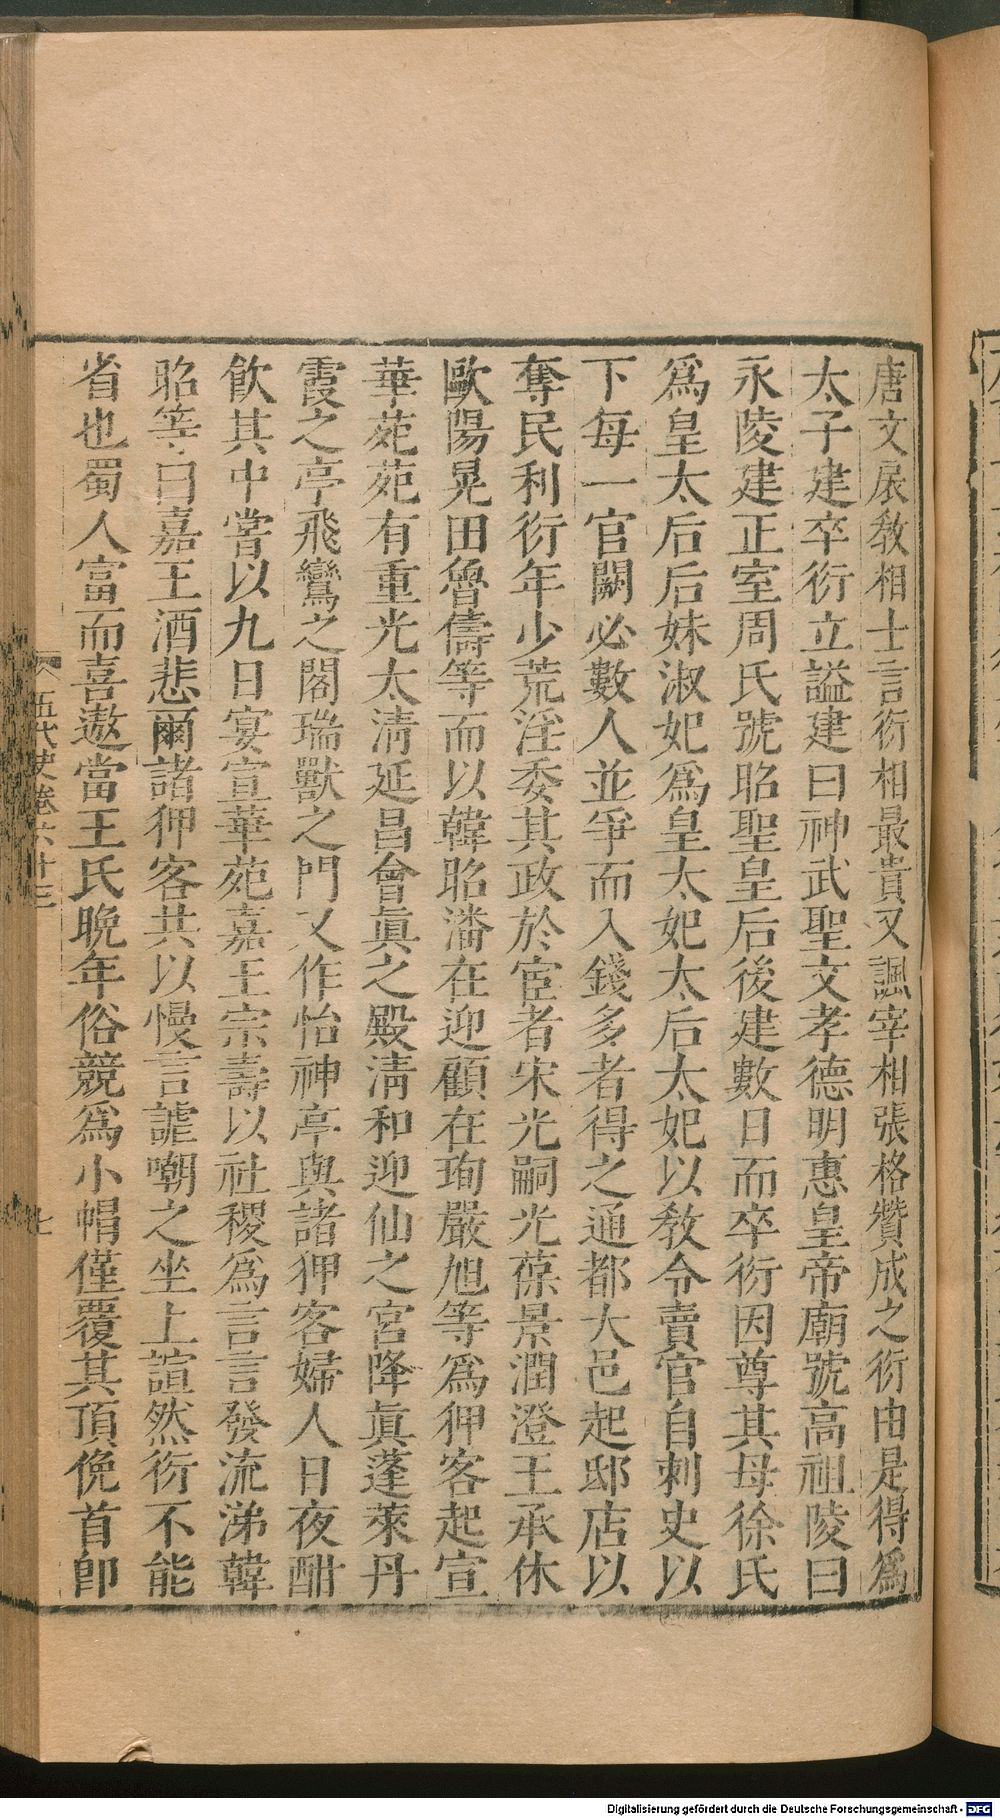 唐文扆敎相士言衍相最貴又諷宰相張格贊成之衍由是得爲
太子建卒衍立謚建曰神武聖文孝德明惠皇帝廟號高祖陵曰
永陵建正室周氏號昭聖皇后後建數日而卒衍因尊其母徐氏
爲皇太后后妹淑妃爲皇太妃太后太妃以敎令賣官自刺史以
下每一官闕必數人並爭而入錢多者得之通都大邑起邸店以
奪民利衍年少荒淫委其政於宦者宋光嗣光葆景潤澄王承休
歐陽晃田魯儔等而以韓昭潘在迎顧在珣嚴旭等爲狎客起宣
華苑苑有重光太淸延昌會眞之殿淸和迎仙之宮降眞蓬萊丹
霞之亭飛鸞之閣瑞獸之門又作怡神亭與諸狎客婦人日夜酣
飮其中嘗以九日宴宣華苑嘉王宗壽以社稷爲言言發流涕韓
昭等曰嘉王酒悲爾諸狎客共以慢言謔嘲之坐上諠然衍不能
省也蜀人富而喜遨當王氏晚年俗競爲小帽僅覆其頂俛首卽
五代史卷六十三
七
Digitalisierung gefördert durch die Deutsche Forschungsgemeinschaft - DFG